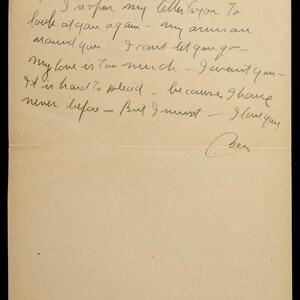 I reopen my letter to you to
look at you again - my arms are
around you. I can't let you go -
my love is too much - I want you -
It is hard to plead - because I have
never before - But I must - I love you